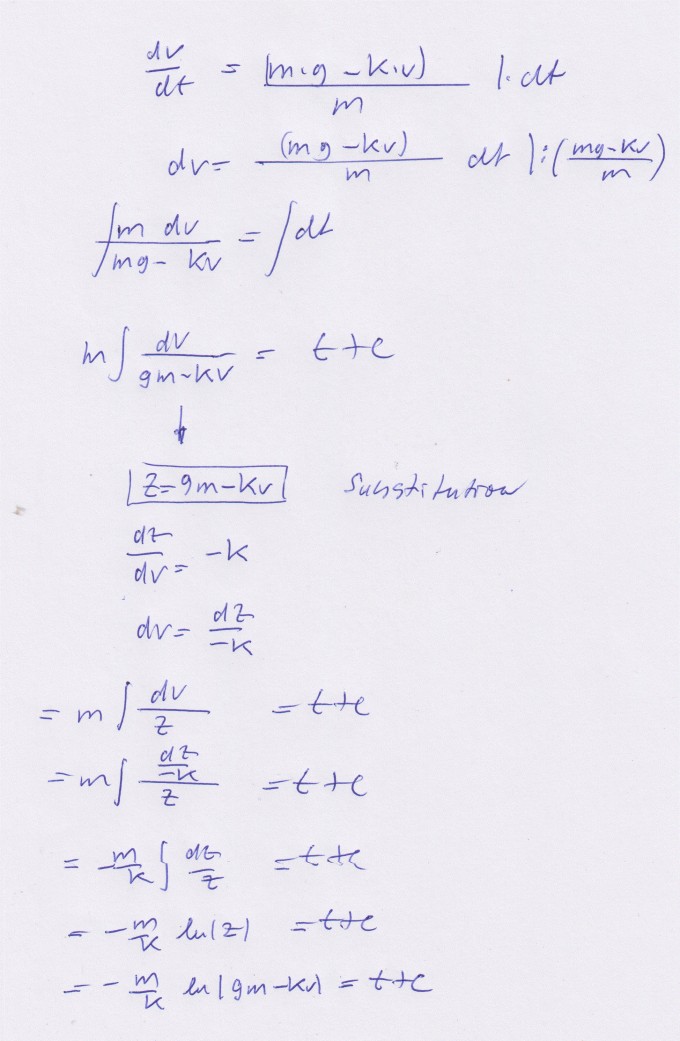 dv/dt = (m·g - k·v)/m |· dt
dv = (mg - kv)/m dt |:((mg-kv)/m)
∫ m dv/(mg - kv) = ∫ dt
m ∫ dv/(gm - kv) = t + c
↓
z = gm - kv Substitution
dz/dv = -k
dv = dz/-k
= m ∫ dv/z = t + c
= m ∫ (dz/-k)/z = t + c
= -m/k ∫ dz/z = t + c
= - m/k ln|z| = t + c
= - m/k ln|gm - kv| = t + c